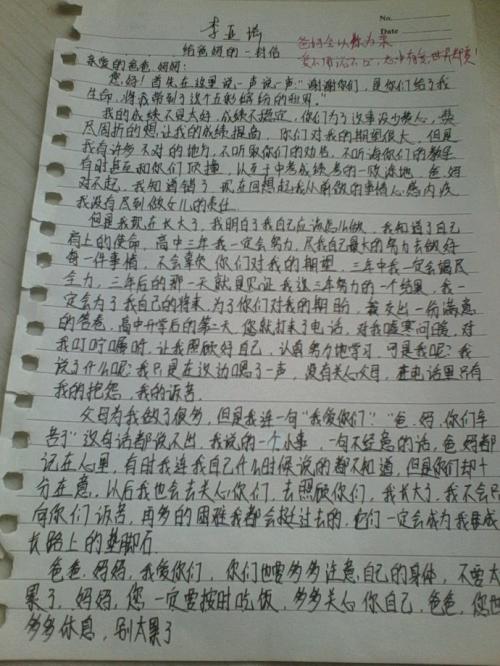 No.
Date
李亚瑞
给爸妈的一封信
爸妈会以你为荣
亲爱的爸爸、妈妈:
您好!首先在这里说一声说一声:"谢谢你们,是你们给了我
生命,将我带到了这个五彩缤纷的世界。"
我的成绩不是太好,成绩不稳定,你们为了这事没少操心,费
尽周折的想让我的成绩提高,你们对我的期望很大,但是
我有许多不对的地方,不听取你们的劝告,不听海你们的教诲
有时甚至和你们顶撞,以至于中考成绩考的一败涂地,爸妈
对不起,我知道错了,现在回想起我从前做的事情心感内疚
我没有尽到做女儿的责任。
但是我现在长大了,我明白了我自己应该怎么做,我知道了自己
肩上的使命,高中三年我一定会努力,尽我自己最大的努力去做好
每一件事情,不会辜负你们对我的期望,三年中我一定会竭尽
全力,三年后的那一天就是见证我这三年努力的一个结果,我一
定会为了我自己的将来,为了你们对我的期盼,我交出一份满意
的答卷,高中开学后的第二天,您就打来了电话,对我嘘寒问暖,对
我叮咛嘱咐,让我照顾好自己,认真努力地学习,可是我呢?我
说了什么呢?我只是在这边嗯了一声,没有关心父母,在电话里只有
我的抱怨,我的诉苦。
父母为我做了很多,但是我连一句"我爱你们""爸、妈,你们辛
苦了"这句话都说不出,我说的一个小事,一句不经意的话,爸妈都
记在心里,有时我连我自己什么时候说的都不知道,但是你们却十
分在意,以后我也会去关心你们,去照顾你们,我长大了,我不会只
向你们诉苦,再多的困难我都会挺过去的,它们一定会成为我要成
长路上的垫脚石。
爸爸、妈妈,我爱你们,你们也要多多注意自己的身体,不要太
累了,妈妈,您一定要按时吃饭,多多关心你自己,爸爸,您也
多多休息,别太累了